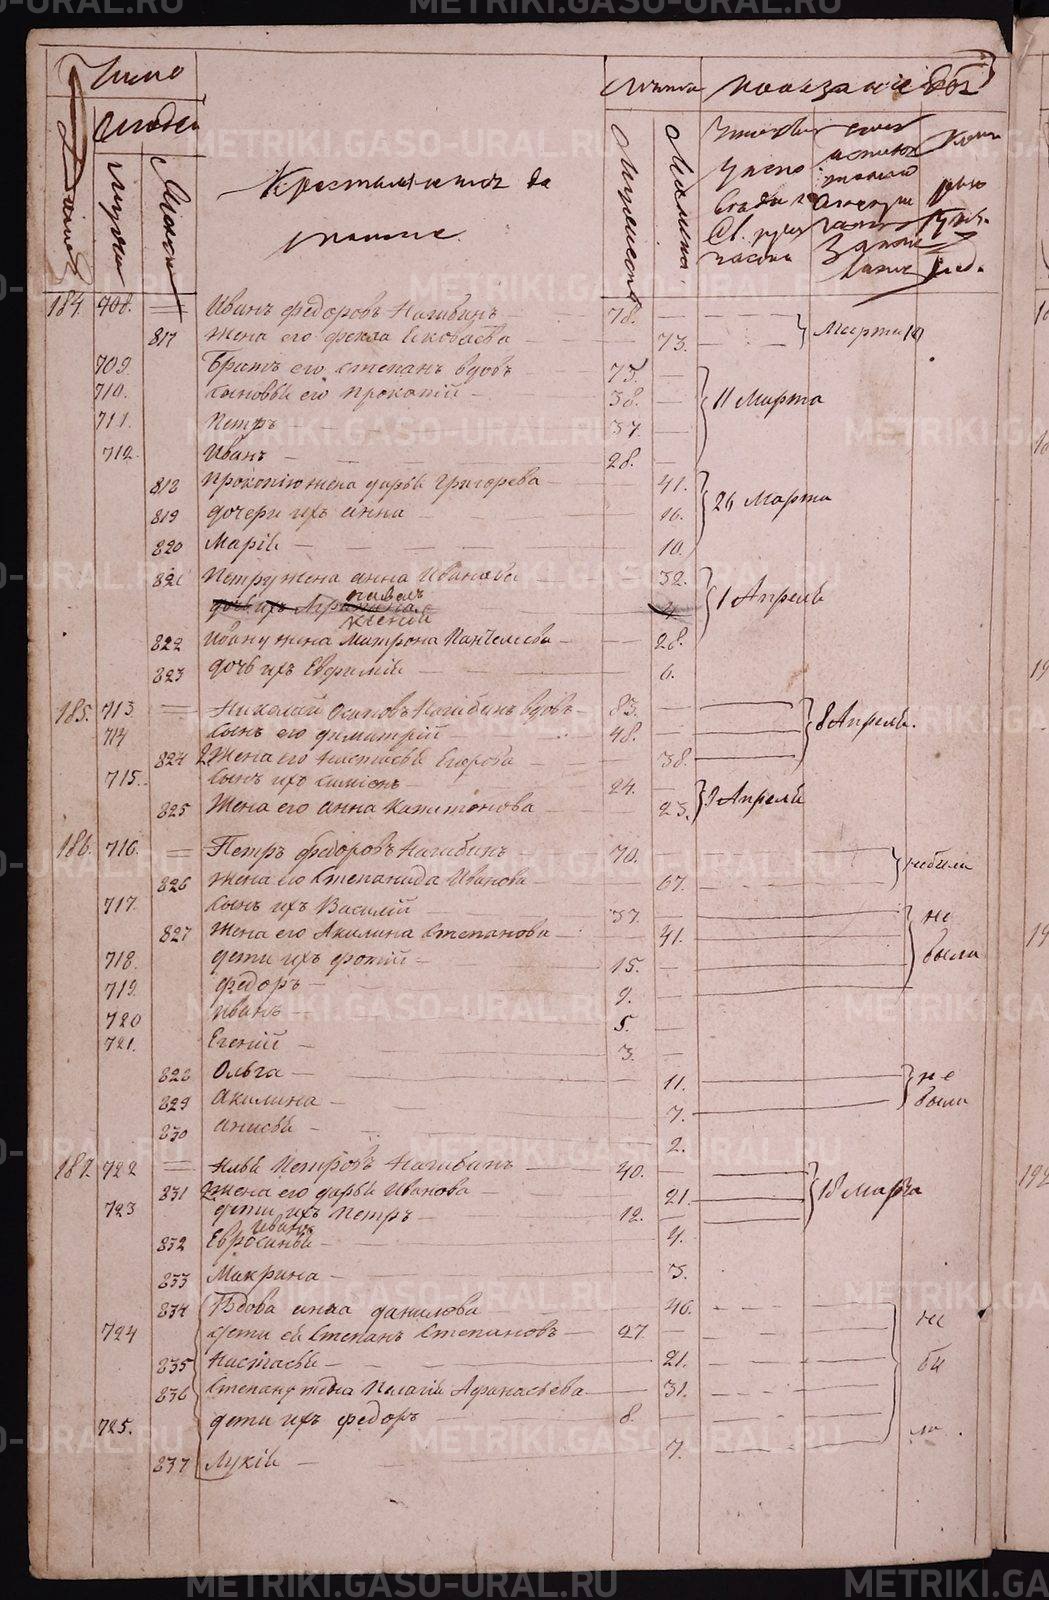 Число
людей
Лѣта
Показаніе
Крестьянъ и ихъ до
машніе
184. 708. Иванъ Федоровъ Нагибинъ 78.
817 Жена его Фекла Ековаева 73. Марта
709. Братъ его Степанъ вдовъ 75.
710. Сыновья его Прокопій 38. 11 Марта
711. Петръ 37.
712 Иванъ 28.
818 Прокопію жена Дарья Григорева 41.
819 дочери ихъ Анна 16. 26 Марта
820 Марія 10.
821 Петру жена Анна Иванова 32.
дочь ихъ 1 Апреля
822 Ивану жена Матрона 28.
823 дочь ихъ Евфимія 6.
185. 713 Николай Осиповъ Нагибинъ вдовъ 83.
714 сынъ его Димитрій 48. 8 Апреля.
824 Жена его Настасья Егорова 38.
715. сынъ ихъ Симіонъ 24.
825 Жена его Анна Капитонова 23. 9 Апреля
186. 716. Петръ Федоровъ Нагибинъ 70.
826 Жена его Степанида Иванова 67. небыли
717. сынъ ихъ Василій 37. не
827 Жена его Акилина Степанова 41.
718. дети ихъ Фотій 15. были
719. Федоръ 9.
720 Иванъ 5.
721. Егеній 3.
828 Ольга 11. не
829 Акилина 7. были
830 Анисья 2.
187. 722 Илья Петровъ Нагибинъ 40.
831 Жена его Дарья Иванова 21. 18 Марта
723 дети ихъ Петръ 12.
Иванъ
832 Евросинья 4.
833 Макрина 3.
834 Вдова Анна Данилова 46. не
724 дети ей Степанъ Степановъ 27.
835 Настасья 21. бы
836 Степану жена Пелагія Афанасьева 31.
725. дети ихъ Федоръ 8. ли.
837 Лукія 7.
METRIKI.GASO-URAL.RU